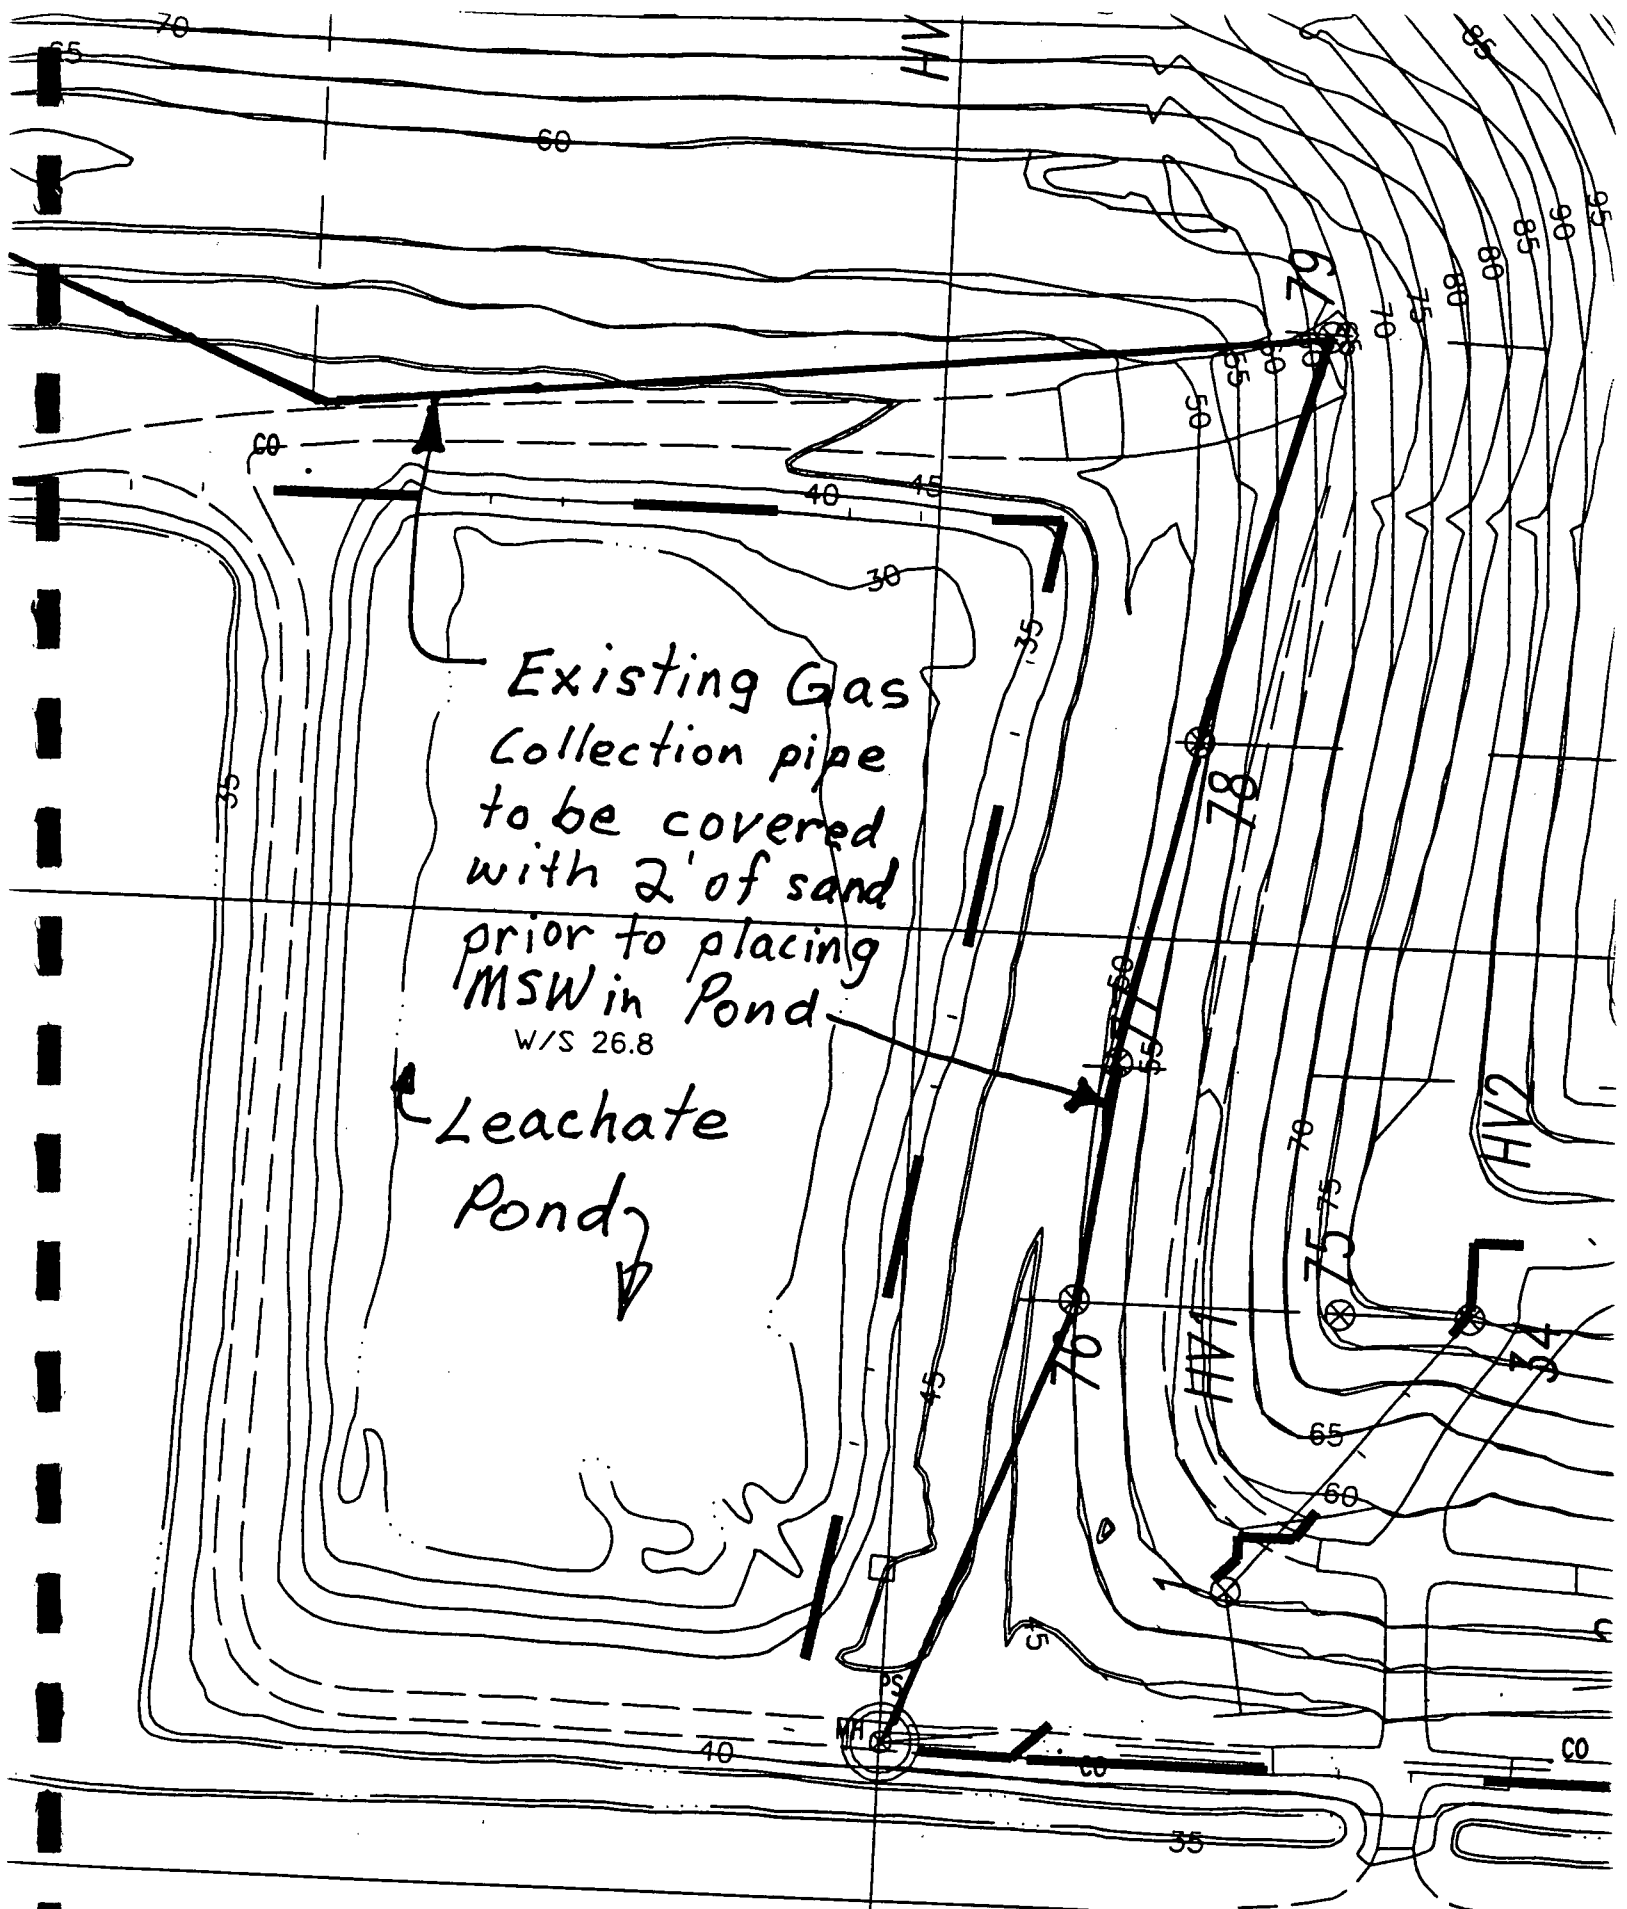 70
HV
85
65
60
95
90
85
80
80
75
70
79
65
60
55
50
CO
45
40
30
35
Existing Gas
Collection pipe
to be covered
with 2' of sand
prior to placing
MSW in Pond
W/S 26.8
Leachate
Pond
35
78
50
77
55
HV2
70
75
75
76
HV1
34
45
65
60
1
45
PS
MH
40
CO
CO
35